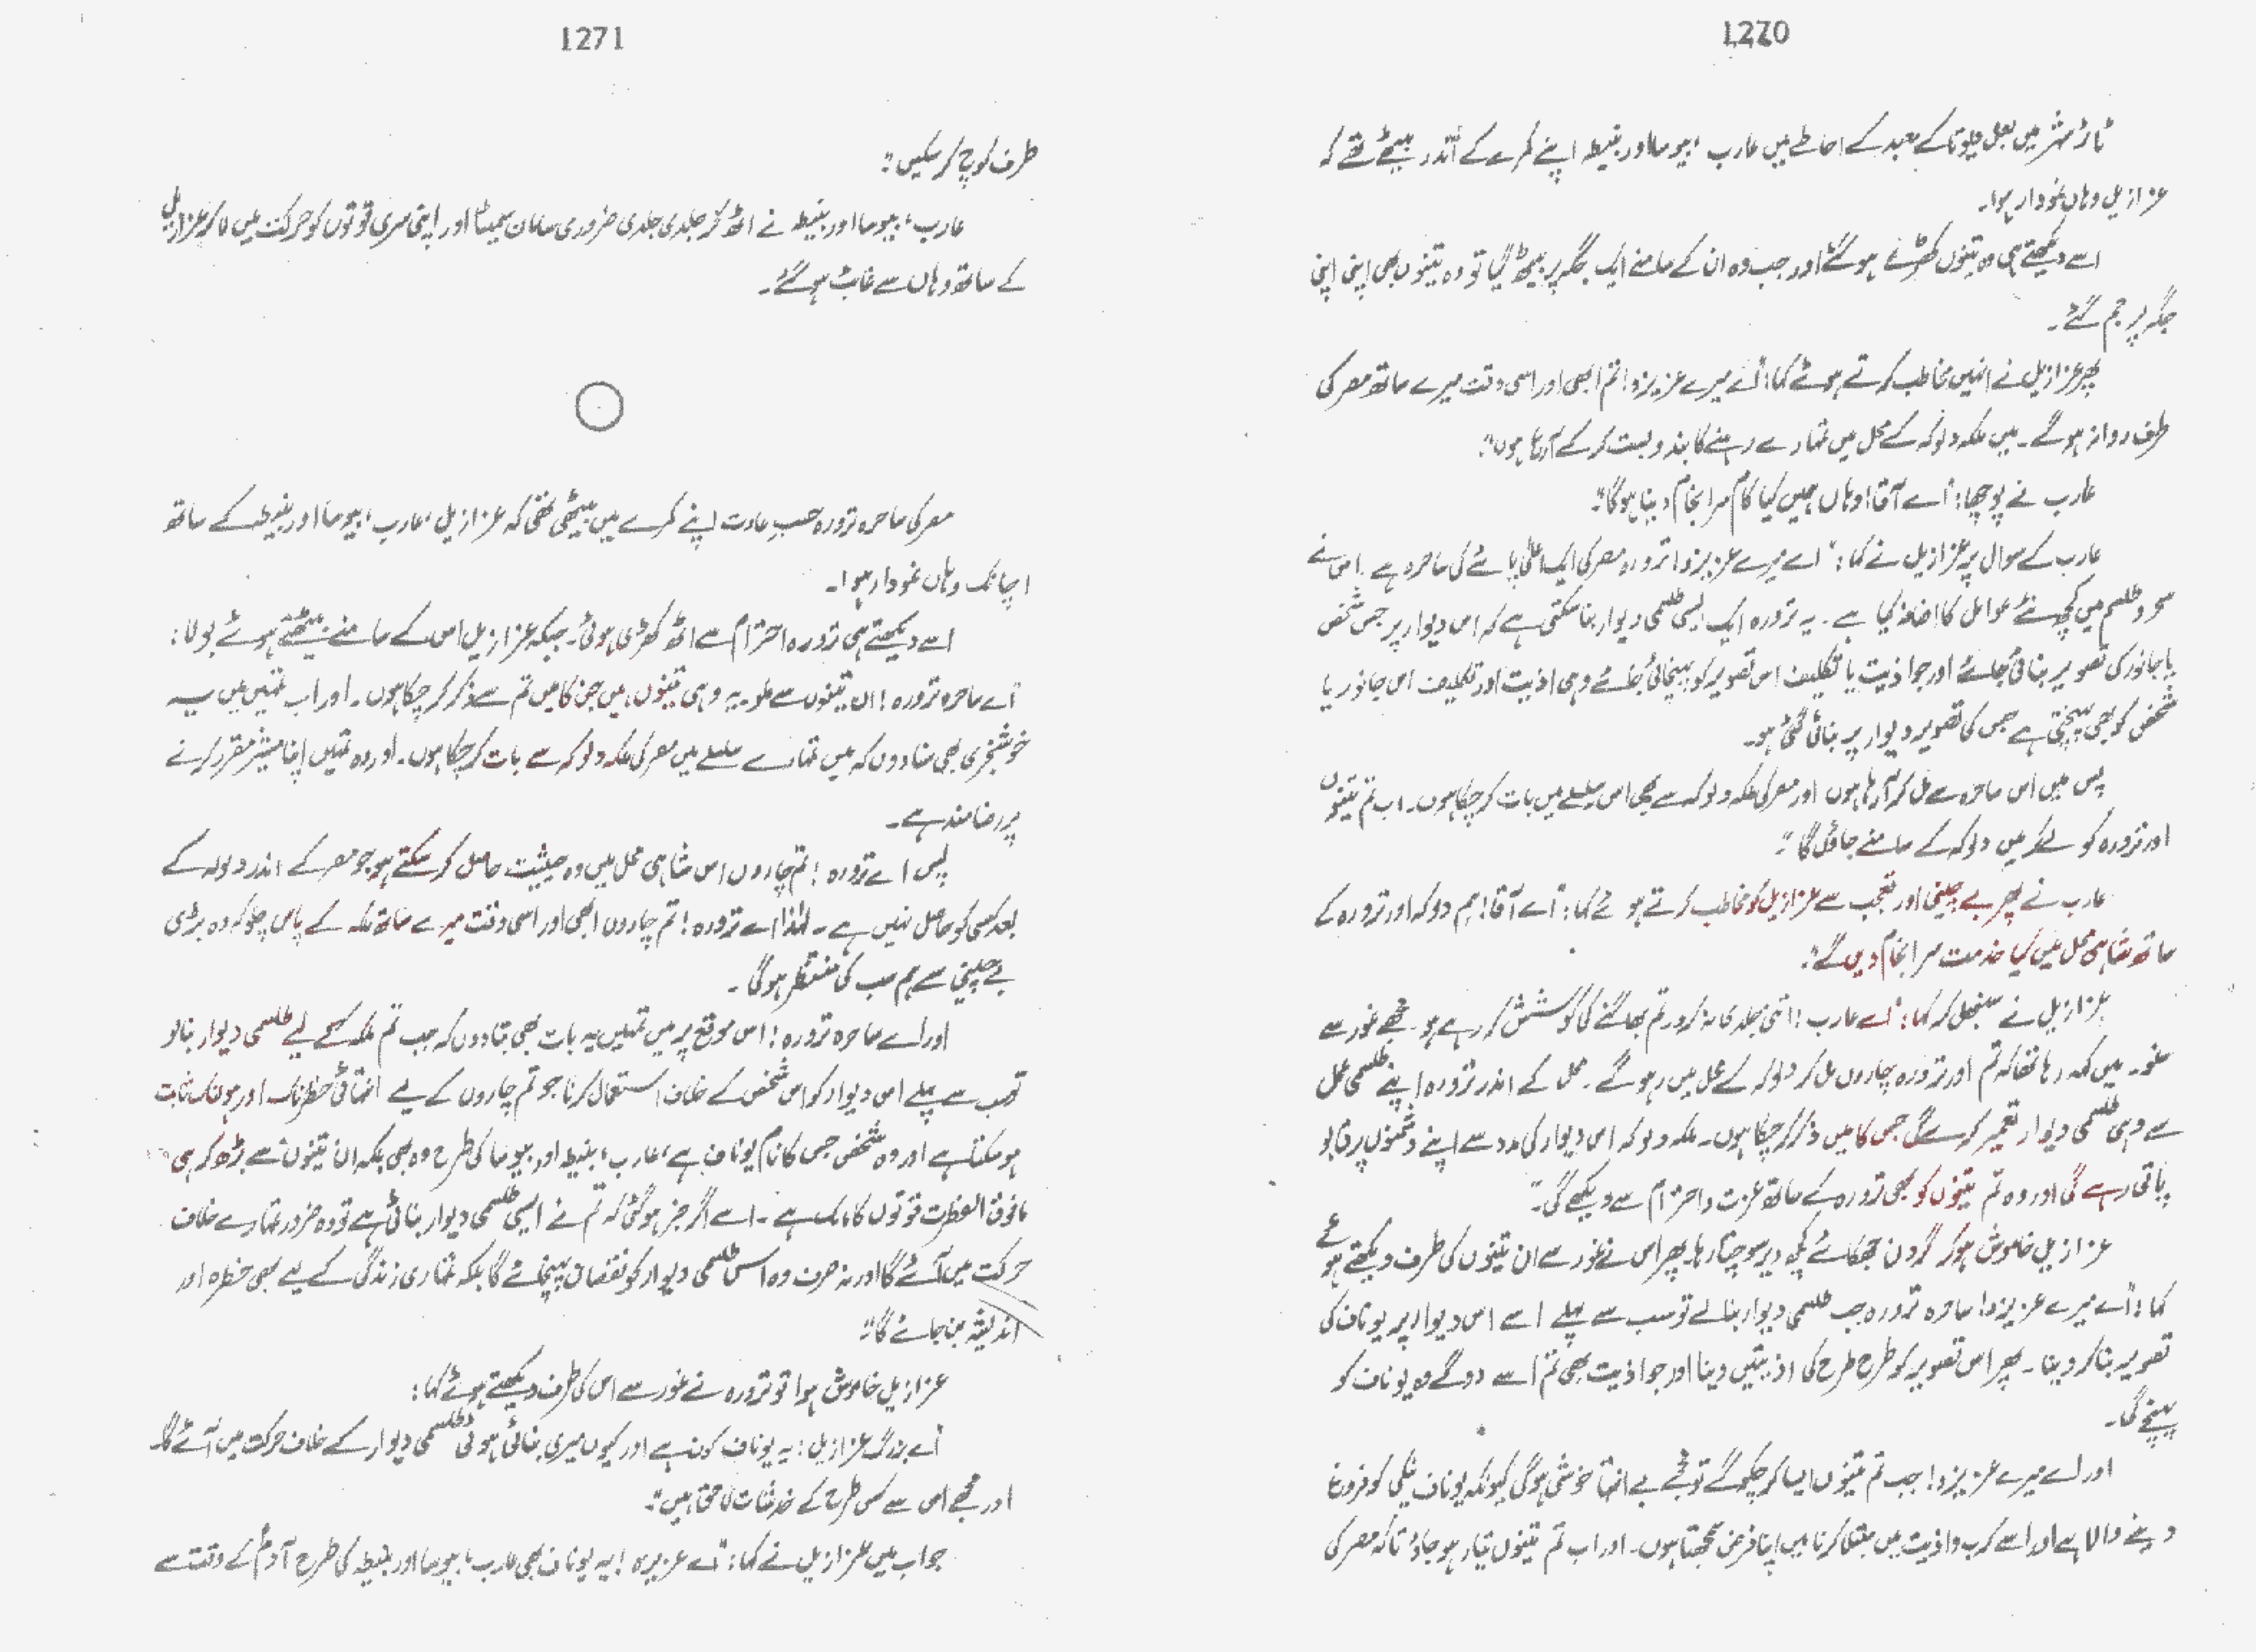 1270
ٹائر شہر میں بعل دیوتا کے معبد کے احاطے میں عارب، بیوسا اور بنیطہ اپنے کمرے کے اندر بیٹھے تھے کہ
عزازیل وہاں نمودار ہوا۔
اسے دیکھتے ہی وہ تینوں کھڑے ہو گئے اور جب وہ ان کے سامنے ایک جگہ پر بیٹھ گیا تو وہ تینوں بھی اپنی اپنی
جگہ پر جم گئے۔
پھر عزازیل نے انہیں مخاطب کرتے ہوئے کہا: "اے میرے عزیزو! تم ابھی اور اسی وقت میرے ساتھ مصر کی
طرف روانہ ہو گے۔ میں ملکہ دلوکہ کے محل میں تمہارے رہنے کا بندوبست کر کے آ رہا ہوں"۔
عارب نے پوچھا: "اے آقا! وہاں ہمیں کیا کام سرانجام دینا ہوگا"؟
عارب کے سوال پر عزازیل نے کہا: "اے میرے عزیزو! تزورہ مصر کی ایک اعلیٰ پائے کی ساحرہ ہے۔ اس نے
سحر و طلسم میں کچھ نئے عوامل کا اضافہ کیا ہے۔ یہ تزورہ ایک ایسی طلسمی دیوار بنا سکتی ہے کہ اس دیوار پر جس شخص
یا جانور کی تصویر بنائی جائے اور جو اذیت یا تکلیف اس تصویر کو پہنچائی جائے وہی اذیت اور تکلیف اس جانور یا
شخص کو بھی پہنچتی ہے جس کی تصویر دیوار پر بنائی گئی ہو۔
پس میں اس ساحرہ سے مل کر آ رہا ہوں اور مصر کی ملکہ دلوکہ سے بھی اس سلسلے میں بات کر چکا ہوں۔ اب تم تینوں
اور تزورہ کو لے کر میں دلوکہ کے سامنے جاؤں گا"۔
عارب نے پھر بے چینی اور تعجب سے عزازیل کو مخاطب کرتے ہوئے کہا: "اے آقا! ہم دلوکہ اور تزورہ کے
ساتھ شاہی محل میں کیا خدمت سرانجام دیں گے"؟
عزازیل نے سنبھل کر کہا: "اے عارب! اتنی جلدی نہ کرو۔ تم بھاگنے کی کوشش کر رہے ہو۔ مجھے غور سے
سنو۔ میں کہہ رہا تھا کہ تم اور تزورہ چاروں مل کر دلوکہ کے محل میں رہو گے۔ محل کے اندر تزورہ اپنے طلسمی عمل
سے وہی طلسمی دیوار تعمیر کرے گی جس کا میں ذکر کر چکا ہوں۔ ملکہ دلوکہ اس دیوار کی مدد سے اپنے دشمنوں پر قابو
پاتی رہے گی اور وہ تم تینوں کو بھی تزورہ کے ساتھ عزت و احترام سے دیکھے گی"۔
عزازیل خاموش ہو کر گردن جھکائے کچھ دیر سوچتا رہا۔ پھر اس نے غور سے ان تینوں کی طرف دیکھتے ہوئے
کہا: "اے میرے عزیزو! ساحرہ تزورہ جب طلسمی دیوار بنا لے تو سب سے پہلے اسے اس دیوار پر یوناف کی
تصویر بنا کر دینا۔ پھر اس تصویر کو طرح طرح کی اذیتیں دینا اور جو اذیت بھی تم اسے دو گے وہ یوناف کو
پہنچے گی۔
اور اے میرے عزیزو! جب تم تینوں ایسا کر چکو گے تو مجھے بے انتہا خوشی ہوگی کیونکہ یوناف نیکی کو فروغ
دینے والا ہے اور اسے کرب و اذیت میں مبتلا کرنا میں اپنا فرض سمجھتا ہوں۔ اور اب تم تینوں تیار ہو جاؤ تاکہ مصر کی
1271
طرف کوچ کر سکیں"۔
عارب، بیوسا اور بنیطہ نے اٹھ کر جلدی جلدی ضروری سامان سمیٹا اور اپنی سری قوتوں کو حرکت میں لا کر عزازیل
کے ساتھ وہاں سے غائب ہو گئے۔
مصر کی ساحرہ تزورہ حسبِ عادت اپنے کمرے میں بیٹھی تھی کہ عزازیل، عارب، بیوسا اور بنیطہ کے ساتھ
اچانک وہاں نمودار ہوا۔
اسے دیکھتے ہی تزورہ احترام سے اٹھ کھڑی ہوئی۔ جبکہ عزازیل اس کے سامنے بیٹھتے ہوئے بولا:
"اے ساحرہ تزورہ! ان تینوں سے ملو۔ یہ وہی تینوں ہیں جن کا میں تم سے ذکر کر چکا ہوں۔ اور اب تمہیں میں یہ
خوشخبری بھی سنا دوں کہ میں تمہارے سلسلے میں مصر کی ملکہ دلوکہ سے بات کر چکا ہوں۔ اور وہ تمہیں اپنا مشیر مقرر کرنے
پر رضامند ہے۔
پس اے تزورہ! تم چاروں اس شاہی محل میں وہ حیثیت حاصل کر سکتے ہو جو مصر کے اندر دلوکہ کے
بعد کسی کو حاصل نہیں ہے۔ لہٰذا اے تزورہ! تم چاروں ابھی اور اسی وقت میرے ساتھ ملکہ کے پاس چلو کہ وہ بڑی
بے چینی سے ہم سب کی منتظر ہوگی۔
اور اے ساحرہ تزورہ! اس موقع پر میں تمہیں یہ بات بھی بتا دوں کہ جب تم ملکہ کے لیے طلسمی دیوار بنا لو
تو سب سے پہلے اس دیوار کو اس شخص کے خلاف استعمال کرنا جو تم چاروں کے لیے انتہائی خطرناک اور ہولناک ثابت
ہو سکتا ہے اور وہ شخص جس کا نام یوناف ہے، عارب، بنیطہ اور بیوسا کی طرح وہ بھی بلکہ ان تینوں سے بڑھ کر ہی
مافوق الفطرت قوتوں کا مالک ہے۔ اسے اگر خبر ہو گئی کہ تم نے ایسی طلسمی دیوار بنائی ہے تو وہ ضرور تمہارے خلاف
حرکت میں آئے گا اور نہ صرف وہ اس طلسمی دیوار کو نقصان پہنچائے گا بلکہ تمہاری زندگی کے لیے بھی خطرہ اور
اندیشہ بن جائے گا"۔
عزازیل خاموش ہوا تو تزورہ نے غور سے اس کی طرف دیکھتے ہوئے کہا:
"اے بزرگ عزازیل! یہ یوناف کون ہے اور کیوں میری بنائی ہوئی طلسمی دیوار کے خلاف حرکت میں آئے گا۔
اور مجھے اس سے کس طرح کے خدشات لاحق ہیں"۔
جواب میں عزازیل نے کہا: "اے عزیزہ! یہ یوناف بھی عارب، بیوسا اور بنیطہ کی طرح آدمؑ کے وقت سے